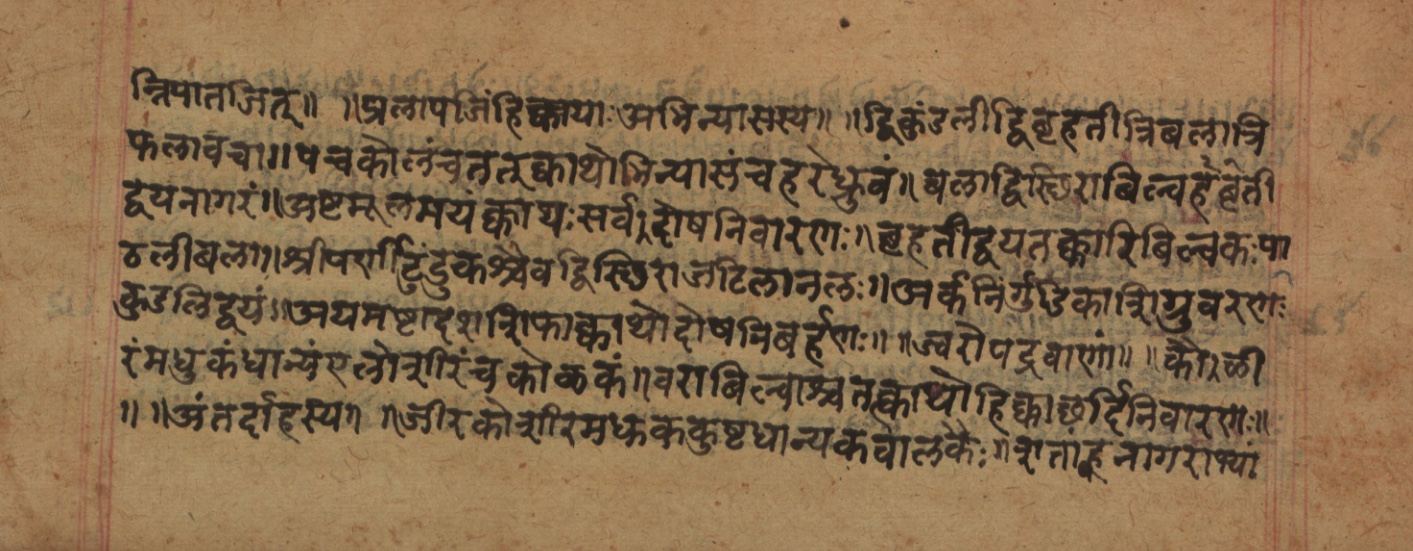 न्निपातजित्॥ ॥प्रलापजिंहिक्कायाः अभिन्यासस्य॥ ॥द्विकुंडलीद्विबृहतीत्रिबलात्रि
फलावचा॥पंचकोलंचतत्क्वाथोभिन्यासंचहरेध्रुवं॥बलाद्विस्छिराबिल्वबृहती
द्वयनागरं॥अष्टमूलमयंक्वाथःसर्वदोषनिवारणः॥बृहतीद्वयतर्कारिबिल्वकःपा
ठलीबलो॥श्रीपर्णीटिंडुकश्चैवद्विस्छिराजटिलानलः॥अर्कनिर्गुंडिकाशिग्रुवरण
कुडलिद्वयं॥अयमष्टादशशिफाक्वाथोदोषनिबर्हणः॥ ॥ज्वरोपद्रवाणां॥ ॥कोळी
रंमधुकंधान्यंएलोशीरंचकोळकं॥वराबिल्वाश्चतत्क्वाथोहिक्काछर्दिनिवारणः॥
॥ ॥अंतर्दाहस्य॥ ॥जीरकोशीरमधुककुष्टधान्यकवालकैः॥शताहूनागराभ्यां